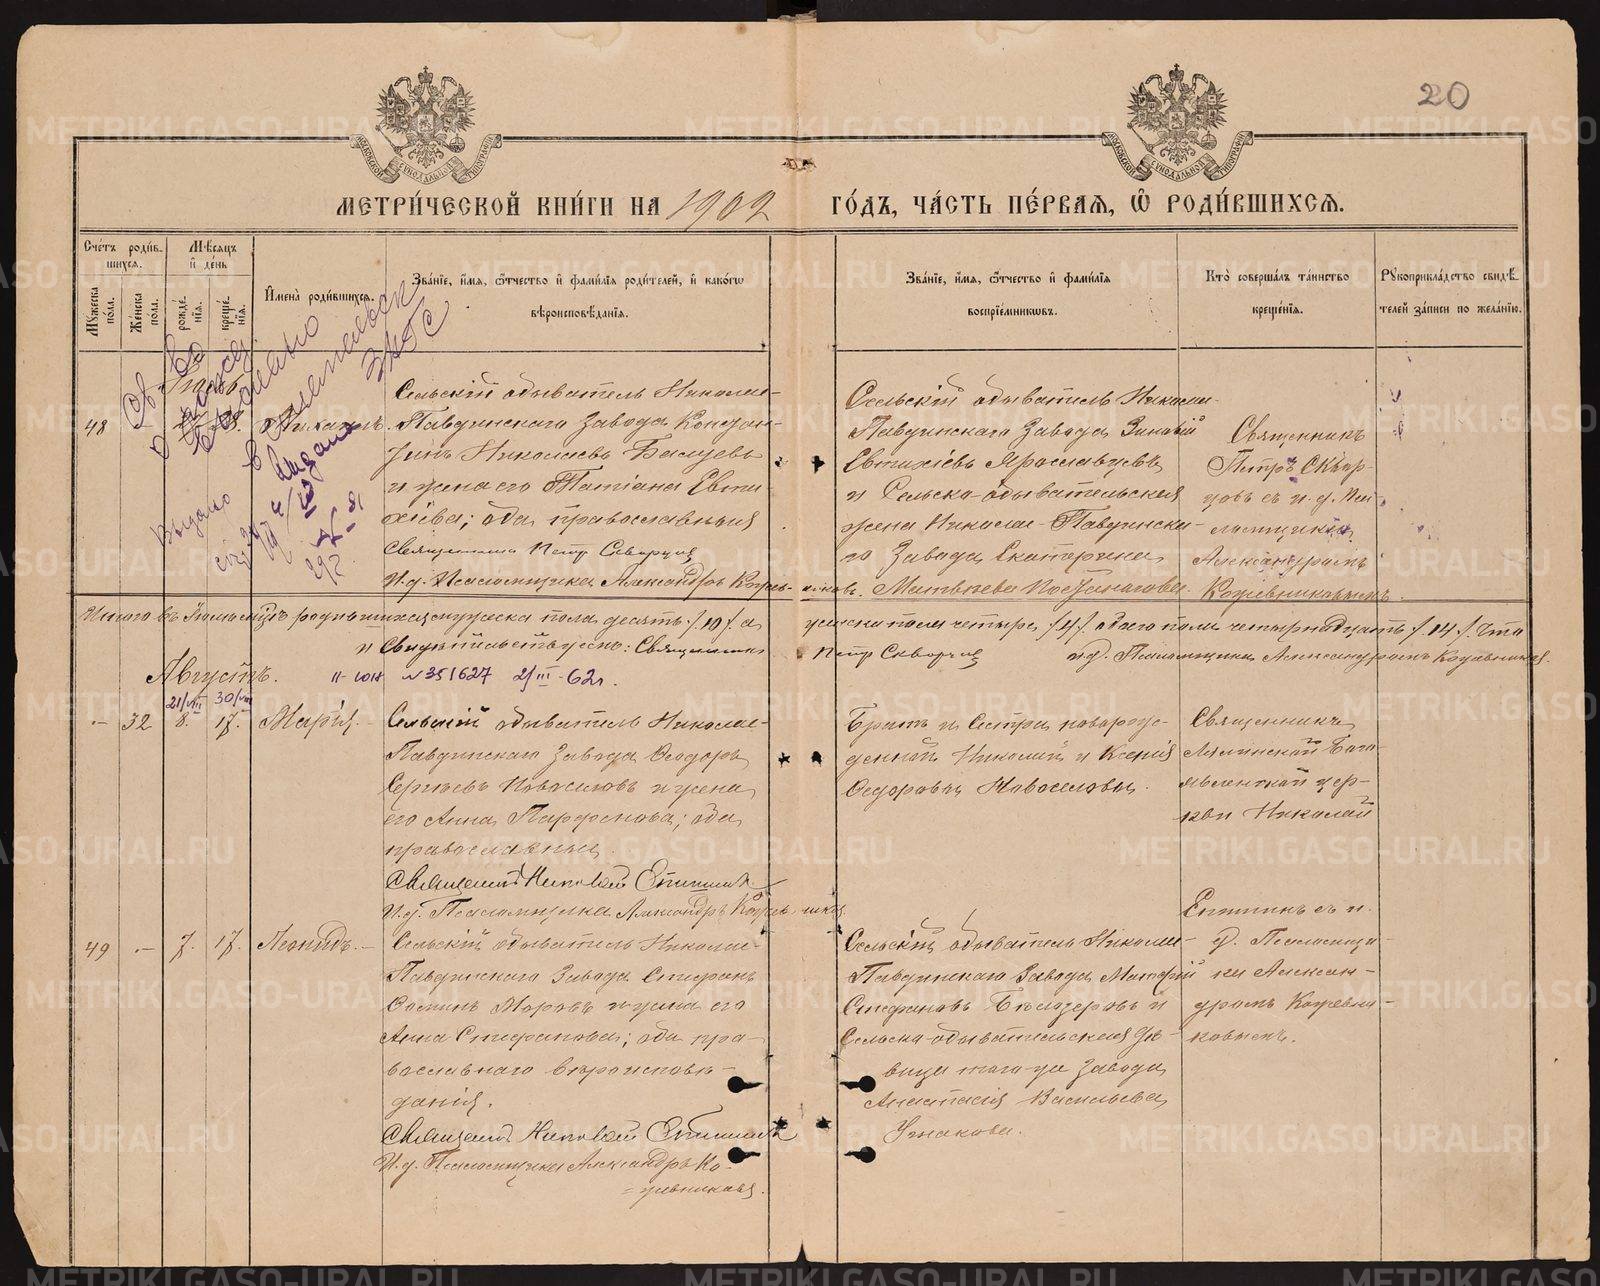 20
МЕТРИ́ЧЕСКОЙ КНИ́ГИ НА 1902 ГО́ДЪ, ЧА́СТЬ ПЕ́РВАЯ, Ѿ РОДИ́ВШИХСЯ.
Сче́тъ роди́вшихся.
Мꙋ́жеска по́ла.
Же́нска по́ла.
Мѣ́сяцъ и҆ де́нь
рожде́нїя.
креще́нїя.
И҆мена̀ роди́вшихся.
Зва́нїе, и҆́мя, ѻ҆́тчество и҆ фами́лїя роди́телей, и҆ како́гѡ
вѣроисповѣ́данїя.
Зва́нїе, и҆́мя, ѻ҆́тчество и҆ фами́лїя
воспрїе́мникѡвъ.
Кто̀ соверша́лъ та́инство
креще́нїя.
Рꙋкоприкла́дство свидѣ́телей за́писи по жела́нїю.
48
Михаилъ.
Сельскій обыватель Николае-
Павдинскаго Завода Кондра-
Николаевъ Балуевъ
и жена его Татіана Евти-
хіева; оба православныя
Священникъ Петръ Скворцовъ
И.д. Псаломщика Александръ Кожев-
никовъ.
Сельскій обыватель Николае-
Павдинскаго Завода Зиновій
Евтихіевъ Ярославцевъ
и Сельско-обывательская
жена Николае-Павдинска-
го Завода Екатерина
Матвѣева
Священникъ
Петръ Сквор-
цовъ съ и.д. Пса-
ломщика
Александромъ
Кожевниковымъ.
Итого въ Іюлѣ мѣсяцѣ родившихся мужеска пола десять /10/ а
женска пола четыре /4/ обаго пола четырнадцать /14/. Что
и свидѣтельствуемъ: Священникъ Петръ Скворцовъ
и.д. Псаломщика Александръ Кожевниковъ.
Августъ.
II-ЮН №351627 2/III-62г.
21/VIII 30/VIII
— 32 8. 17. Марія.
Сельскій обыватель Николае-
Павдинскаго Завода Ѳеодоръ
Сергѣевъ Новоселовъ и жена
его Анна Парфенова; оба
православныи.
Священникъ Николай Епишинъ
И.д. Псаломщика Александръ Кожевниковъ
Братъ и Сестра новорож-
денной Николай и Ксенія
Ѳедоровы Новоселовы.
Священникъ
Лялинской Бого-
явленской цер-
кви Николай
Епишинъ съ и.
д. Псаломщи-
ка Алексан-
дромъ Кожевни-
ковымъ.
49 — 7. 17. Леонидъ.
Сельскій обыватель Николае-
Павдинскаго Завода Стефанъ
Ѳоминъ Моровъ и жена его
Анна Стефанова; оба пра-
вославнаго вѣроисповѣ-
данія.
Священникъ Николай Епишинъ
И.д. Псаломщика Александръ Ко-
жевниковъ.
Сельскій обыватель Николае-
Павдинскаго Завода Матфій
Стефановъ Бѣлозеровъ и
Сельско-обывательская дѣ-
вица того-же Завода
Анастасія Васильева
Ушакова.
METRIKI.GASO-URAL.RU